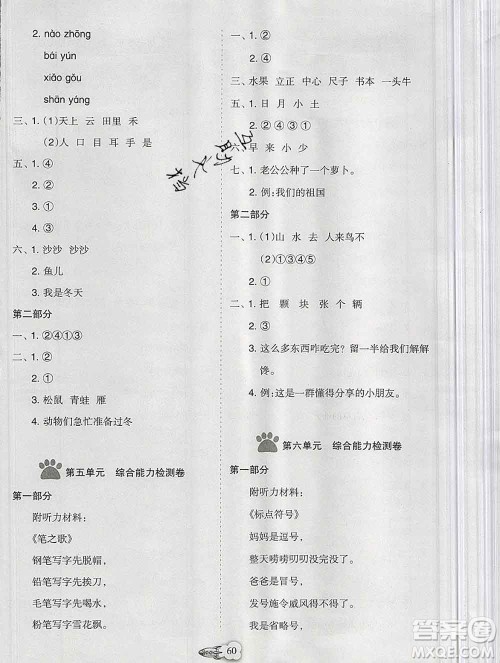 2. nào zhōng
bái yún
xiǎo gǒu
shān yáng
三、1. (1)天上 云 田里 禾
(2)人 口 目 耳 手 是
五、1. ④
2. ③
3. ①
4. ③
六、1. 沙沙 沙沙
2. 鱼儿
3. 我是冬天
第二部分
一、1. ②④①③
2. ①
3. 松鼠 青蛙 雁
4. 动物们急忙准备过冬
第五单元 综合能力检测卷
第一部分
附听力材料：
《笔之歌》
钢笔写字先脱帽，
铅笔写字先挨刀，
毛笔写字先喝水，
粉笔写字雪花飘。
一、1. ②
2. ①
四、水果 立正 中心 尺子 书本 一头牛
五、1. 日 月 小 土
2. ②④③①
六、早 来 小 少
七、1. 老公公种了一个萝卜。
2. 例：我们的祖国
第二部分
一、1. (1)山 水 去 人来鸟不
(2)①③②④⑤
2. ②
二、1. 把 颗 块 张 个 辆
2. ③
3. 这么多东西咋吃完？留一半给我们解解
馋。
4. 例：这是一群懂得分享的小朋友。
第六单元 综合能力检测卷
第一部分
附听力材料：
《标点符号》
妈妈是逗号，
整天唠唠叨叨没个完。
爸爸是冒号，
发号施令威风得不得了。
我是省略号，
60
互助文档